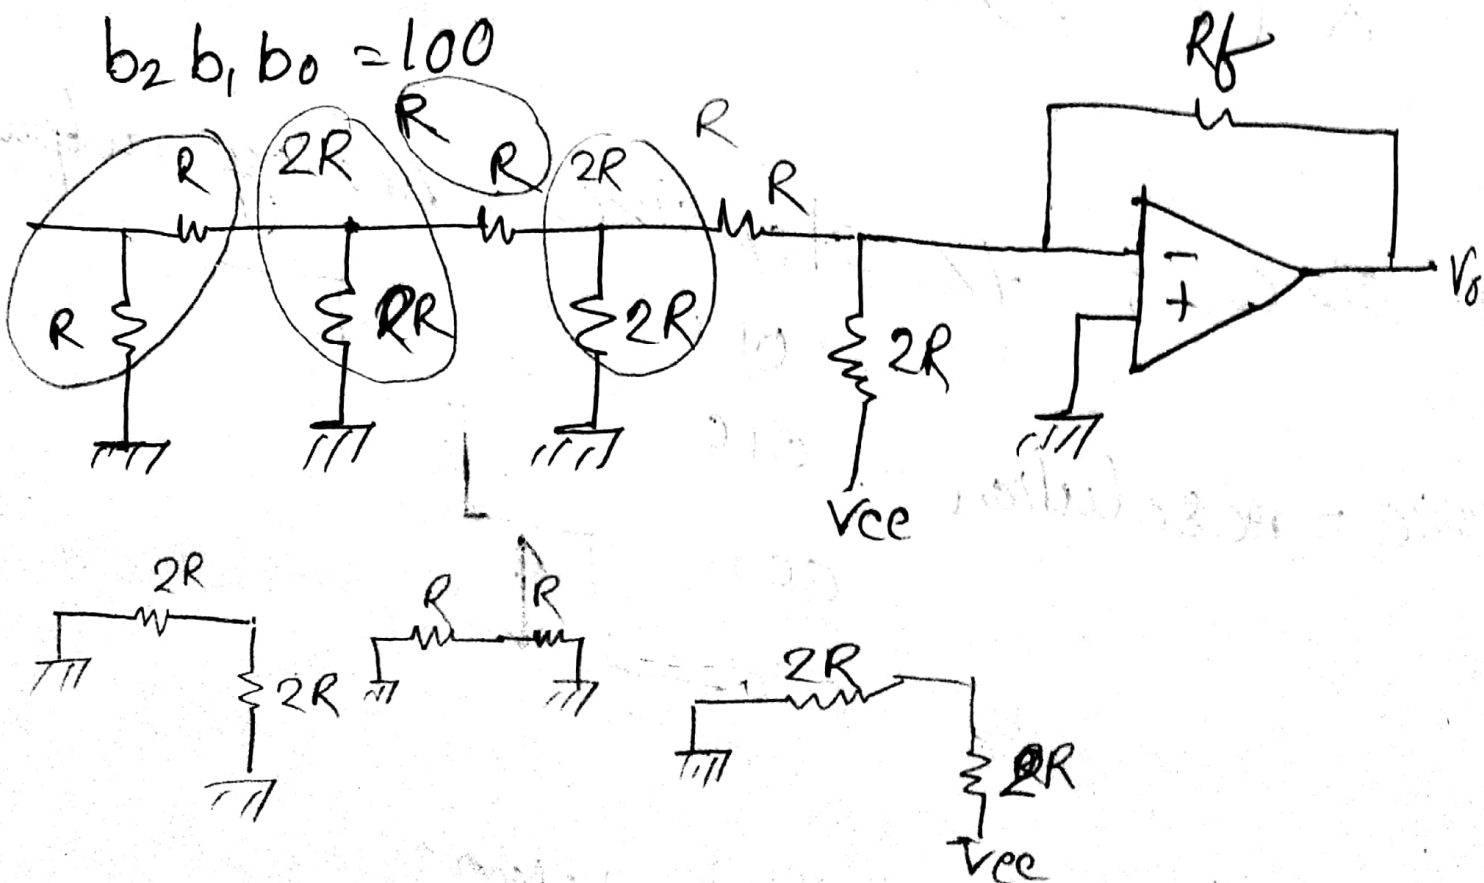 b2 b1 b0 = 100
Rf
R
R
R
2R
R
2R
R
R
R
2R
2R
2R
-
+
Vo
Vcc
2R
2R
R
R
2R
2R
Vcc